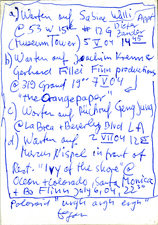 a) Warten auf Sabine Willi April
@ 53 W 15th # 12 G Zander
(Museum Tower) 5 V 04 14 45
b) Warten auf Joachim Kreet &
Gerhard Fillei Finn productions
@ 319 Grand 19 7 V 04
"the Orange paper"
c) Warten auf GengJung
@ La Brea + Beverly Blvd LA
d) Warten auf 2 VII 04 12
Marcus Nispel in front of
Rest. "Ivy of the Shore" @
Ocean + Colorado, Santa Monica
+ Bo Flinn July 6, 04 22 30
Polaroid "urgh argh ergh"